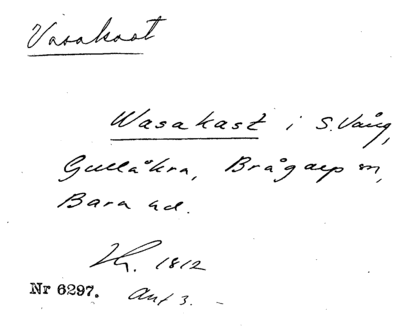 Vasakast
Wasakast i S. Vång,
Gullåkra, Brågarp sn,
Bara hd.
1812
Nr 6297. Ant 3.